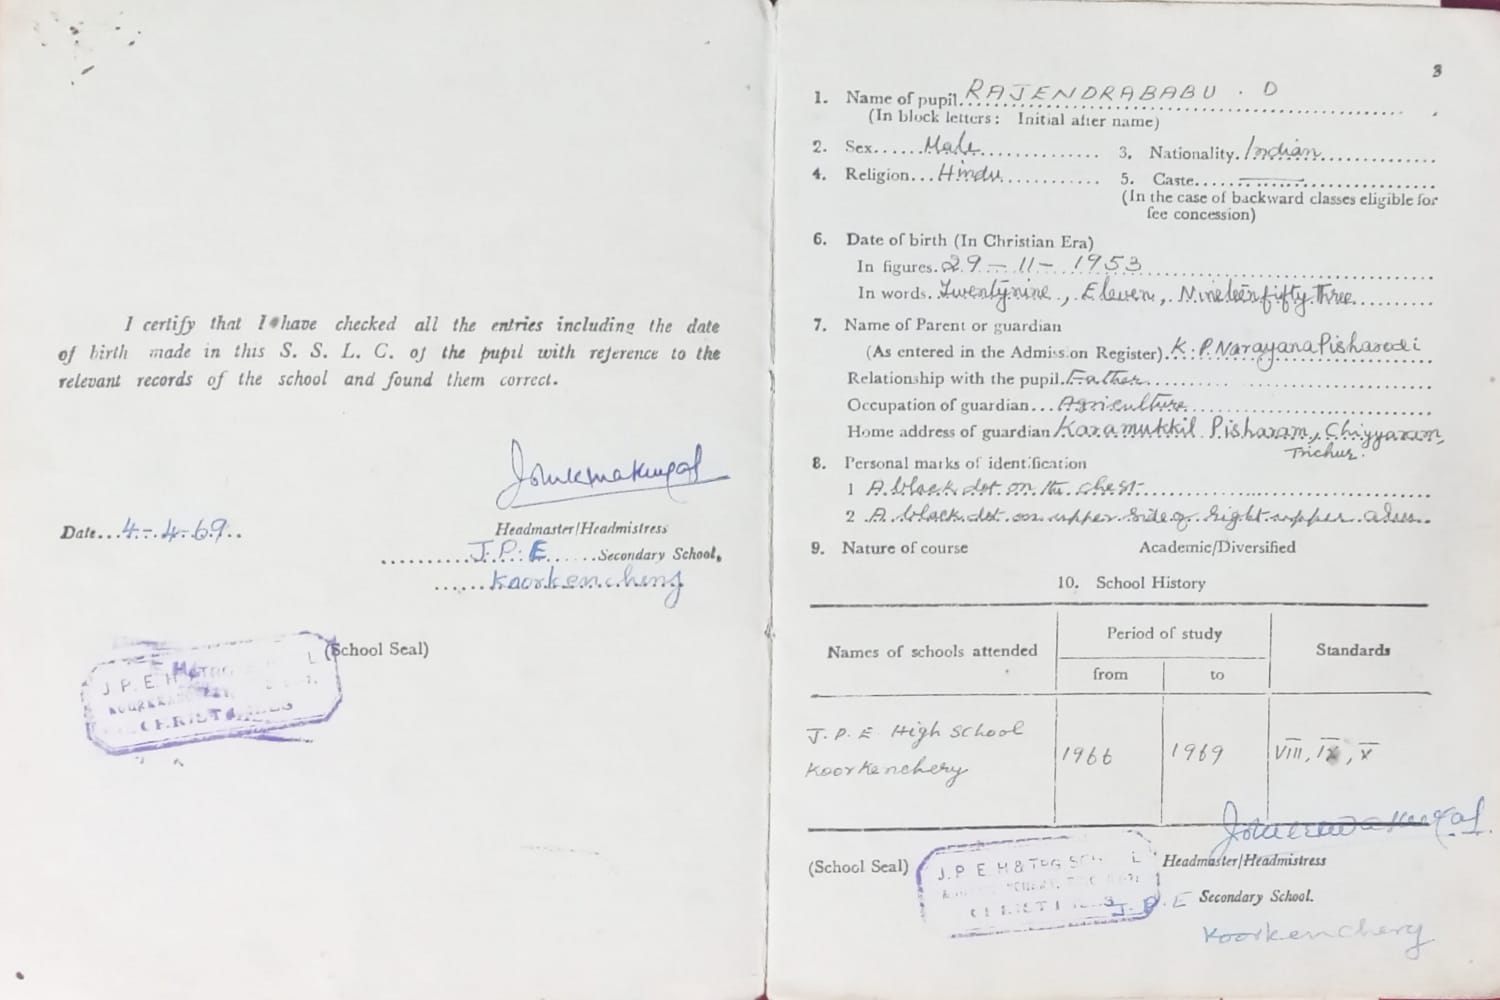 I certify that I have checked all the entries including the date
of birth made in this S. S. L. C. of the pupil with reference to the
relevant records of the school and found them correct.
Date...4-4-69..
Headmaster/Headmistress
..........J.P.E......Secondary School,
......Koorkencherry
(School Seal)
J. P. E. H
3
1. Name of pupil. RAJENDRABABU . D
(In block letters: Initial after name)
2. Sex......Male............... 3. Nationality. Indian
4. Religion...Hindu............ 5. Caste......
(In the case of backward classes eligible for
fee concession)
6. Date of birth (In Christian Era)
In figures. 29-11-1953
In words. Twentynine, Eleven, Nineteen fifty Three
7. Name of Parent or guardian
(As entered in the Admission Register). K. P. Narayana Pisharodi
Relationship with the pupil. Father
Occupation of guardian... Agriculture
Home address of guardian Karamukkil Pisharam, Chiyyaram,
Trichur.
8. Personal marks of identification
1 A black dot on the chest
2 A black dot on upper side of right upper
9. Nature of course Academic/Diversified
10. School History
Names of schools attended
Period of study
from
to
Standards
J. P. E High School
Koorkenchery
1966
1969
VIII, IX, X
(School Seal)
J. P. E. H & TRG SCH L
Headmaster/Headmistress
J.P.E Secondary School.
Koorkenchery